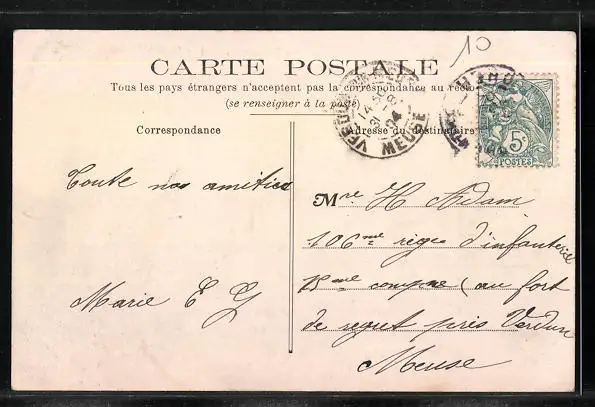 10
CARTE POSTALE
Tous les pays étrangers n'acceptent pas la correspondance au recto
(se renseigner à la poste)
Correspondance
Adresse du destinataire
5
POSTES
MEUSE
Toute nos amitiés
Marie E G
Mre H Adam
106me régé d'infanterie
15me compne (au fort
de regret près Verdun
Meuse